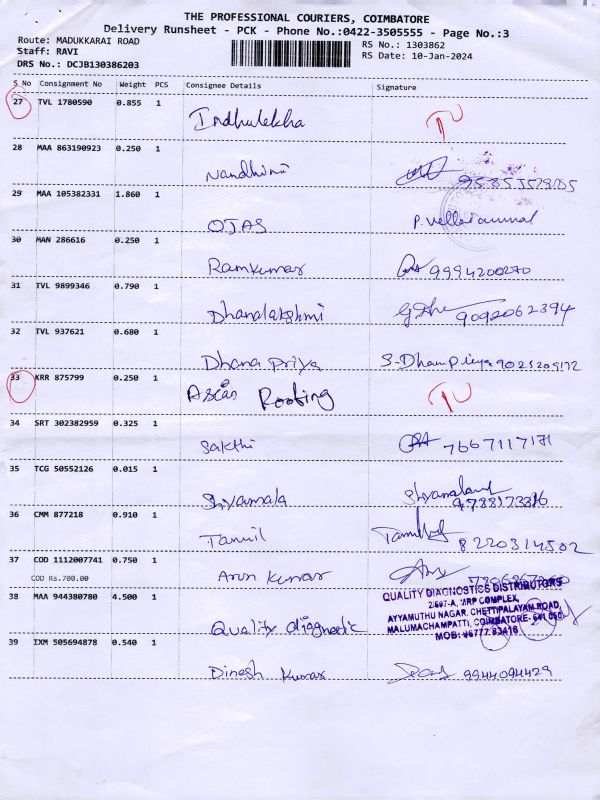 THE PROFESSIONAL COURIERS, COIMBATORE
Delivery Runsheet - PCK - Phone No.:0422-3505555 - Page No.:3
Route: MADUKKARAI ROAD
RS No.: 1303862
Staff: RAVI
RS Date: 10-Jan-2024
DRS No.: DCJB130386203
S No Consignment No Weight PCS Consignee Details Signature
27 TVL 1780590 0.855 1 Indhulekha
28 MAA 863190923 0.250 1
Nandhini
29 MAA 105382331 1.860 1
OJAS P. Vellaiammal
30 MAN 286616 0.250 1
Ramkumar 9994200270
31 TVL 9899346 0.790 1
Dhanalakshmi 9092062394
32 TVL 937621 0.680 1
Dhana Priya
33 KRR 875799 0.250 1 Roofing
34 SRT 302382959 0.325 1
Sakthi 7667117171
35 TCG 50552126 0.015 1
Shyamala
36 CMM 877218 0.910 1
Tamil 8220314502
37 COD 1112007741 0.750 1
COD Rs.700.00
Arun Kumar
38 MAA 944380780 4.500 1
QUALITY DIAGNOSTICS DISTRIBUTORS
2/697-A, MRP COMPLEX,
AYYAMUTHU NAGAR, CHETTIPALAYAM ROAD,
MALUMACHAMPATTI, COIMBATORE-
MOB:
Quality diagnostic
39 IXM 505694878 0.540 1
Dinesh Kumar 9944094429